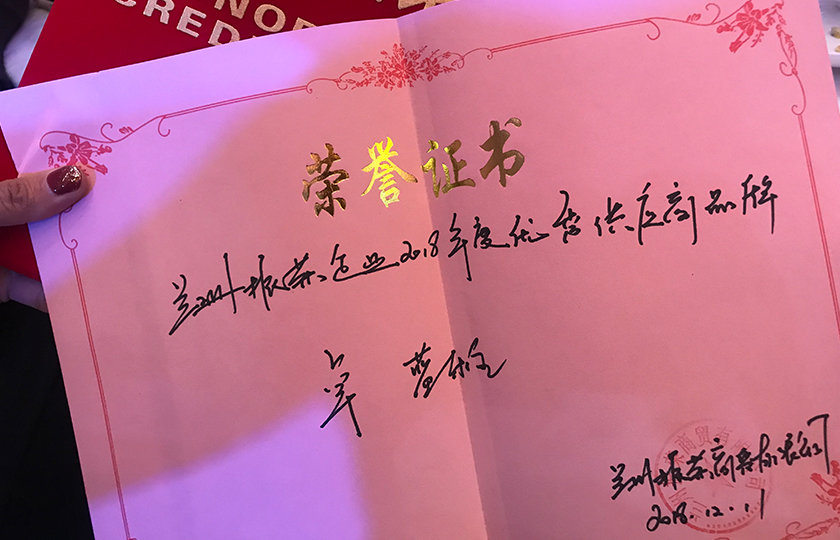 NOR
CRED
荣誉证书
兰州振荣企业2018年度优秀供应商品牌
兰州振荣商贸有限公司
2018.12.11